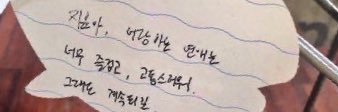 지훈아, 너랑하는 연애는
너무 즐겁고, 고통스러워.
그래도 계속되길